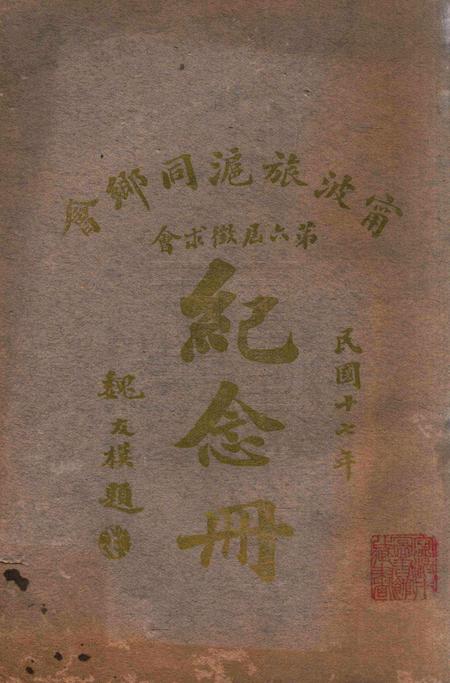 甯波旅滬同鄉會
第六屆徵求會
紀念冊
民國十七年
魏友棐題